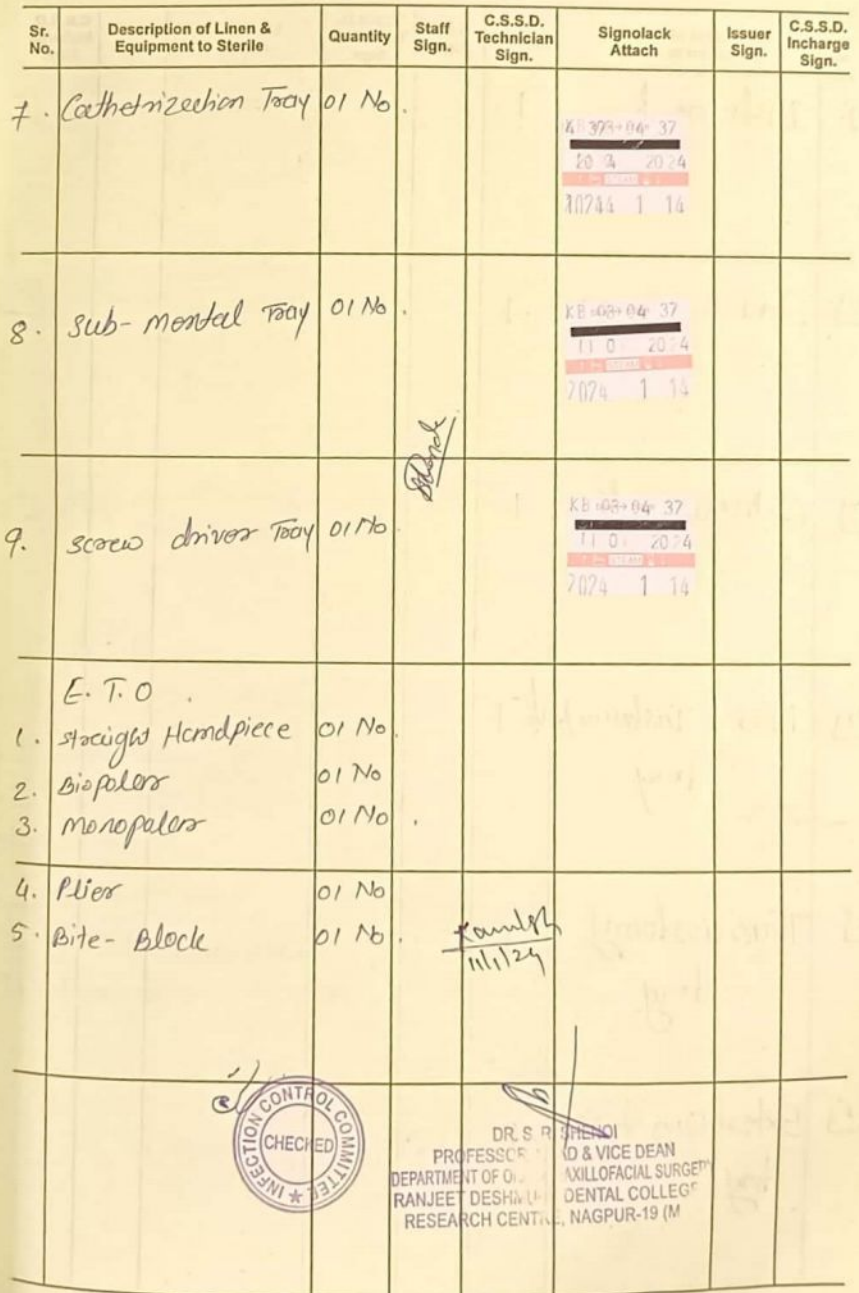 Sr. No.
Description of Linen & Equipment to Sterile
Quantity
Staff Sign.
C.S.S.D. Technician Sign.
Signolack Attach
Issuer Sign.
C.S.S.D. Incharge Sign.
7. Cathetrizection Tray 01 No.
37
2024
1 14
8. Sub-mental Tray 01 No.
KB 03 04 37
11 0 2024
2024 1 14
9. screw driver Tray 01 No.
KB 03 04 37
11 0 2024
STEAM
2024 1 14
E.T.O.
1. straight Handpiece 01 No.
2. Biopolar 01 No
3. monopolar 01 No.
4. Plier 01 No
5. Bite-Block 01 No.
11/1/24
INFECTION CONTROL COMMITTEE
CHECKED
DR. S R SHENOI
PROFESSOR D & VICE DEAN
DEPARTMENT OF AXILLOFACIAL SURGERY
RANJEET DESHMU DENTAL COLLEGE
RESEARCH CENTRE, NAGPUR-19 (M